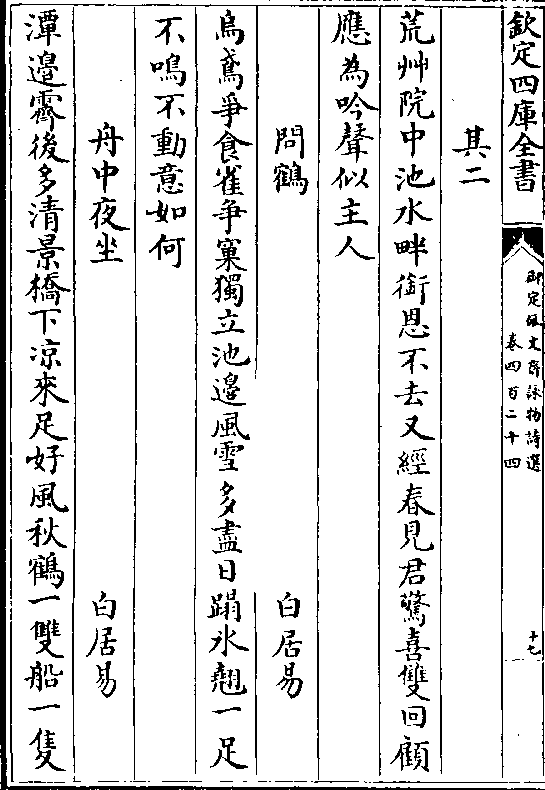 欽定四庫全書
御定佩文齋詠物詩選
卷四百二十四
十七
其二
荒艸院中池水畔銜恩不去又經春見君驚喜雙回顧
應為吟聲似主人
問鶴
白居易
烏鳶爭食雀爭窠獨立池邊風雪多盡日蹋氷翹一足
不鳴不動意如何
舟中夜坐
白居易
潭邉霽後多清景橋下凉來足好風秋鶴一雙船一隻